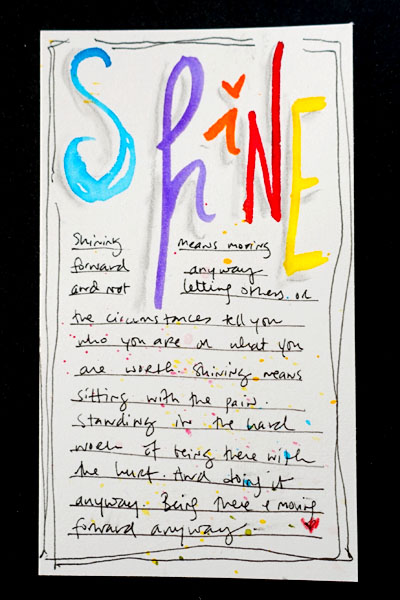 ShiNE
Shining means moving
forward anyway
and not letting others or
the circumstances tell you
who you are or what you
are worth. Shining means
sitting with the pain.
Standing in the hard
work of being there with
the hurt. And doing it
anyway. Being there & moving
forward anyway.